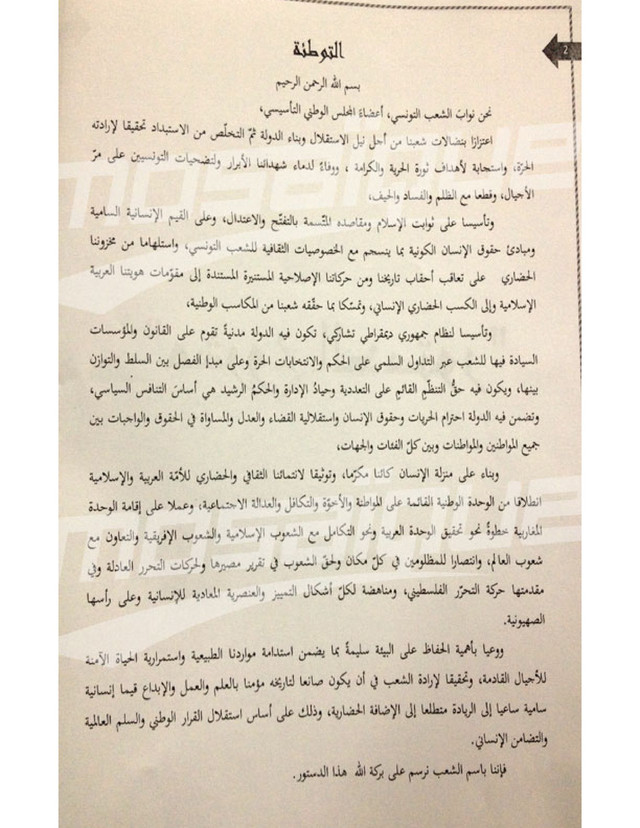 2
التوطئة
بسم الله الرحمن الرحيم
نحن نوابَ الشعب التونسي، أعضاءَ المجلس الوطني التأسيسي،
اعتزازًا بنضالات شعبنا من أجل نيل الاستقلال وبناء الدولة ثمّ التخلّص من الاستبداد تحقيقا لإرادته
الحرّة، واستجابة لأهداف ثورة الحرية والكرامة ، ووفاءً لدماء شهدائنا الأبرار ولتضحيات التونسيين على مرّ
الأجيال، وقطعا مع الظلم والفساد والحيف،
وتأسيسا على ثوابت الإسلام ومقاصده المتّسمة بالتفتّح والاعتدال، وعلى القيم الإنسانية السامية
ومبادئ حقوق الإنسان الكونية بما ينسجم مع الخصوصيات الثقافية للشعب التونسي، واستلهاما من مخزوننا
الحضاري على تعاقب أحقاب تاريخنا ومن حركاتنا الإصلاحية المستنيرة المستندة إلى مقوّمات هويتنا العربية
الإسلامية وإلى الكسب الحضاري الإنساني، وتمسّكا بما حقّقه شعبنا من المكاسب الوطنية،
وتأسيسا لنظام جمهوري ديمقراطي تشاركي، تكون فيه الدولة مدنيةً تقوم على القانون والمؤسسات
السيادة فيها للشعب عبر التداول السلمي على الحكم والانتخابات الحرة وعلى مبدإ الفصل بين السلط والتوازن
بينها، ويكون فيه حقُّ التنظّمِ القائمِ على التعددية وحيادُ الإدارة والحكمُ الرشيد هي أساسَ التنافس السياسي،
وتضمن فيه الدولة احترام الحريات وحقوق الإنسان واستقلالية القضاء والعدل والمساواة في الحقوق والواجبات بين
جميع المواطنين والمواطنات وبين كلّ الفئات والجهات،
وبناء على منزلة الإنسان كائنا مكرّما، وتوثيقا لانتمائنا الثقافي والحضاري للأمّة العربية والإسلامية
انطلاقا من الوحدة الوطنية القائمة على المواطنة والأخوّة والتكافل والعدالة الاجتماعية، وعملا على إقامة الوحدة
المغاربية خطوةً نحو تحقيق الوحدة العربية ونحو التكامل مع الشعوب الإسلامية والشعوب الإفريقية والتعاون مع
شعوب العالم، وانتصارا للمظلومين في كلّ مكان ولحقّ الشعوب في تقرير مصيرها ولحركات التحرر العادلة وفي
مقدمتها حركة التحرّر الفلسطيني، ومناهضة لكلّ أشكال التمييز والعنصرية المعادية للإنسانية وعلى رأسها
الصهيونية.
ووعيا بأهمية الحفاظ على البيئة سليمةً بما يضمن استدامة مواردنا الطبيعية واستمرارية الحياة الآمنة
للأجيال القادمة، وتحقيقا لإرادة الشعب في أن يكون صانعا لتاريخه مؤمنا بالعلم والعمل والإبداع قيما إنسانية
سامية ساعيا إلى الريادة متطلعا إلى الإضافة الحضارية، وذلك على أساس استقلال القرار الوطني والسلم العالمية
والتضامن الإنساني.
فإننا باسم الشعب نرسم على بركة الله هذا الدستور.